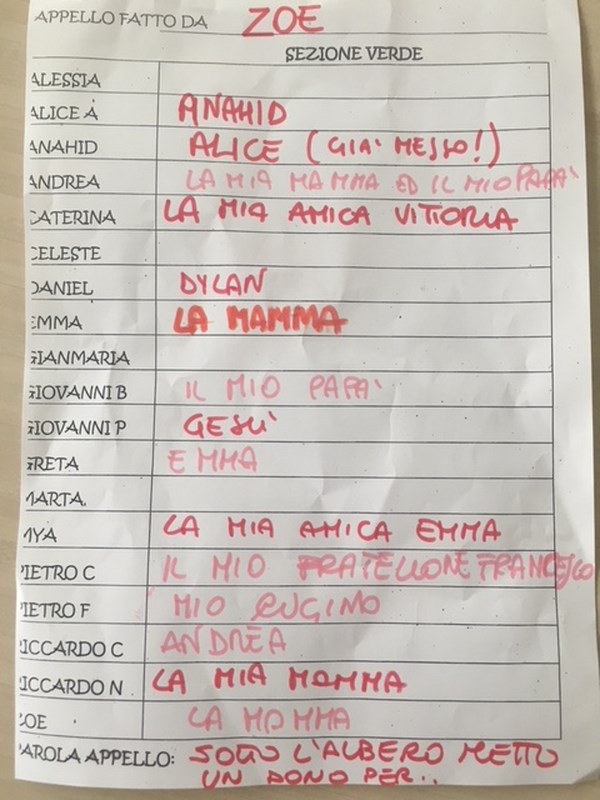 APPELLO FATTO DA ZOE
SEZIONE VERDE
ALESSIA
ALICE A ANAHID
ANAHID ALICE (GIA' MESSO!)
ANDREA LA MIA MAMMA ED IL MIO PAPA'
CATERINA LA MIA AMICA VITTORIA
CELESTE
DANIEL DYLAN
EMMA LA MAMMA
GIANMARIA
GIOVANNI B IL MIO PAPA'
GIOVANNI P GESU'
GRETA EMMA
MARTA.
MYA LA MIA AMICA EMMA
PIETRO C IL MIO FRATELLONE FRANCESCO
PIETRO F MIO CUGINO
RICCARDO C ANDREA
RICCARDO N LA MIA MAMMA
ZOE LA MAMMA
PAROLA APPELLO: SOTTO L'ALBERO METTO
UN DONO PER..